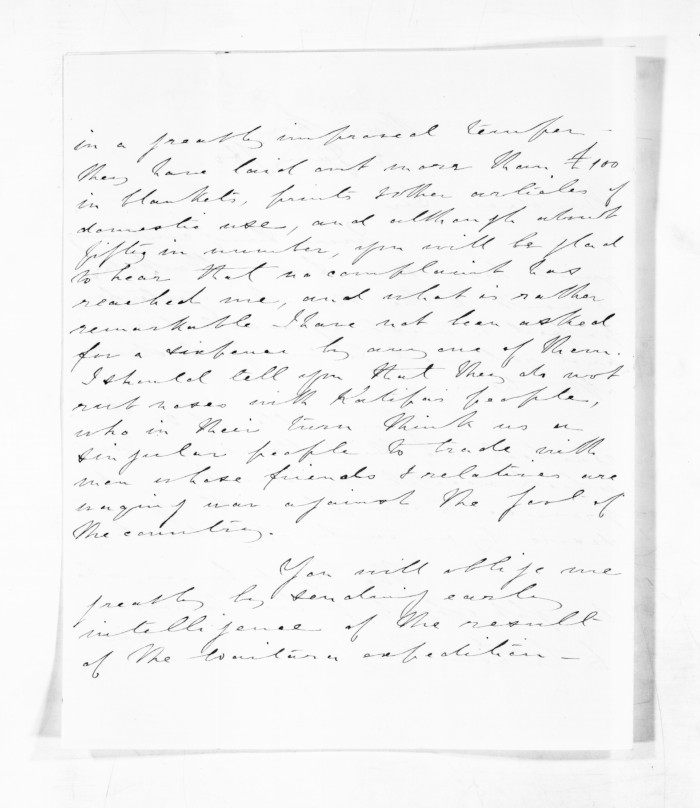 in a greatly improved temper -
they have laid out more than £100
in blankets, prints & other articles of
domestic use, and although about
fifty in number, you will be glad
to hear that no complaint has
reached me, and what is rather
remarkable I have not been asked
for a sixpence by any one of them.
I should tell you that they do not
rub noses with Katifa's people,
who in their turn think us a
singular people to trade with
men whose friends & relatives are
waging war against the Govt of
the country.
You will oblige me
greatly by sending early
intelligence of the result
of the Waitara expedition -